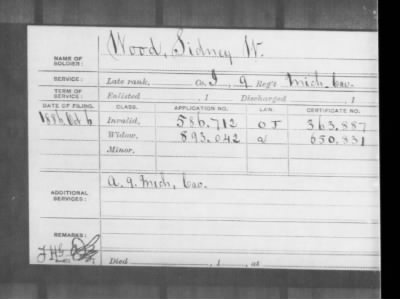 NAME OF SOLDIER: Wood, Sidney W.
SERVICE: Late rank, Co. I, 9 Reg't Mich. Cav.
TERM OF SERVICE: Enlisted , 1 Discharged , 1
DATE OF FILING. CLASS. APPLICATION NO. LAW. CERTIFICATE NO.
1886, Oct 6 Invalid, 586,712 363,887
Widow, 893,042 650,831
Minor,
ADDITIONAL SERVICES: a. 9. Mich, Cav.
REMARKS:
Died , 1 , at